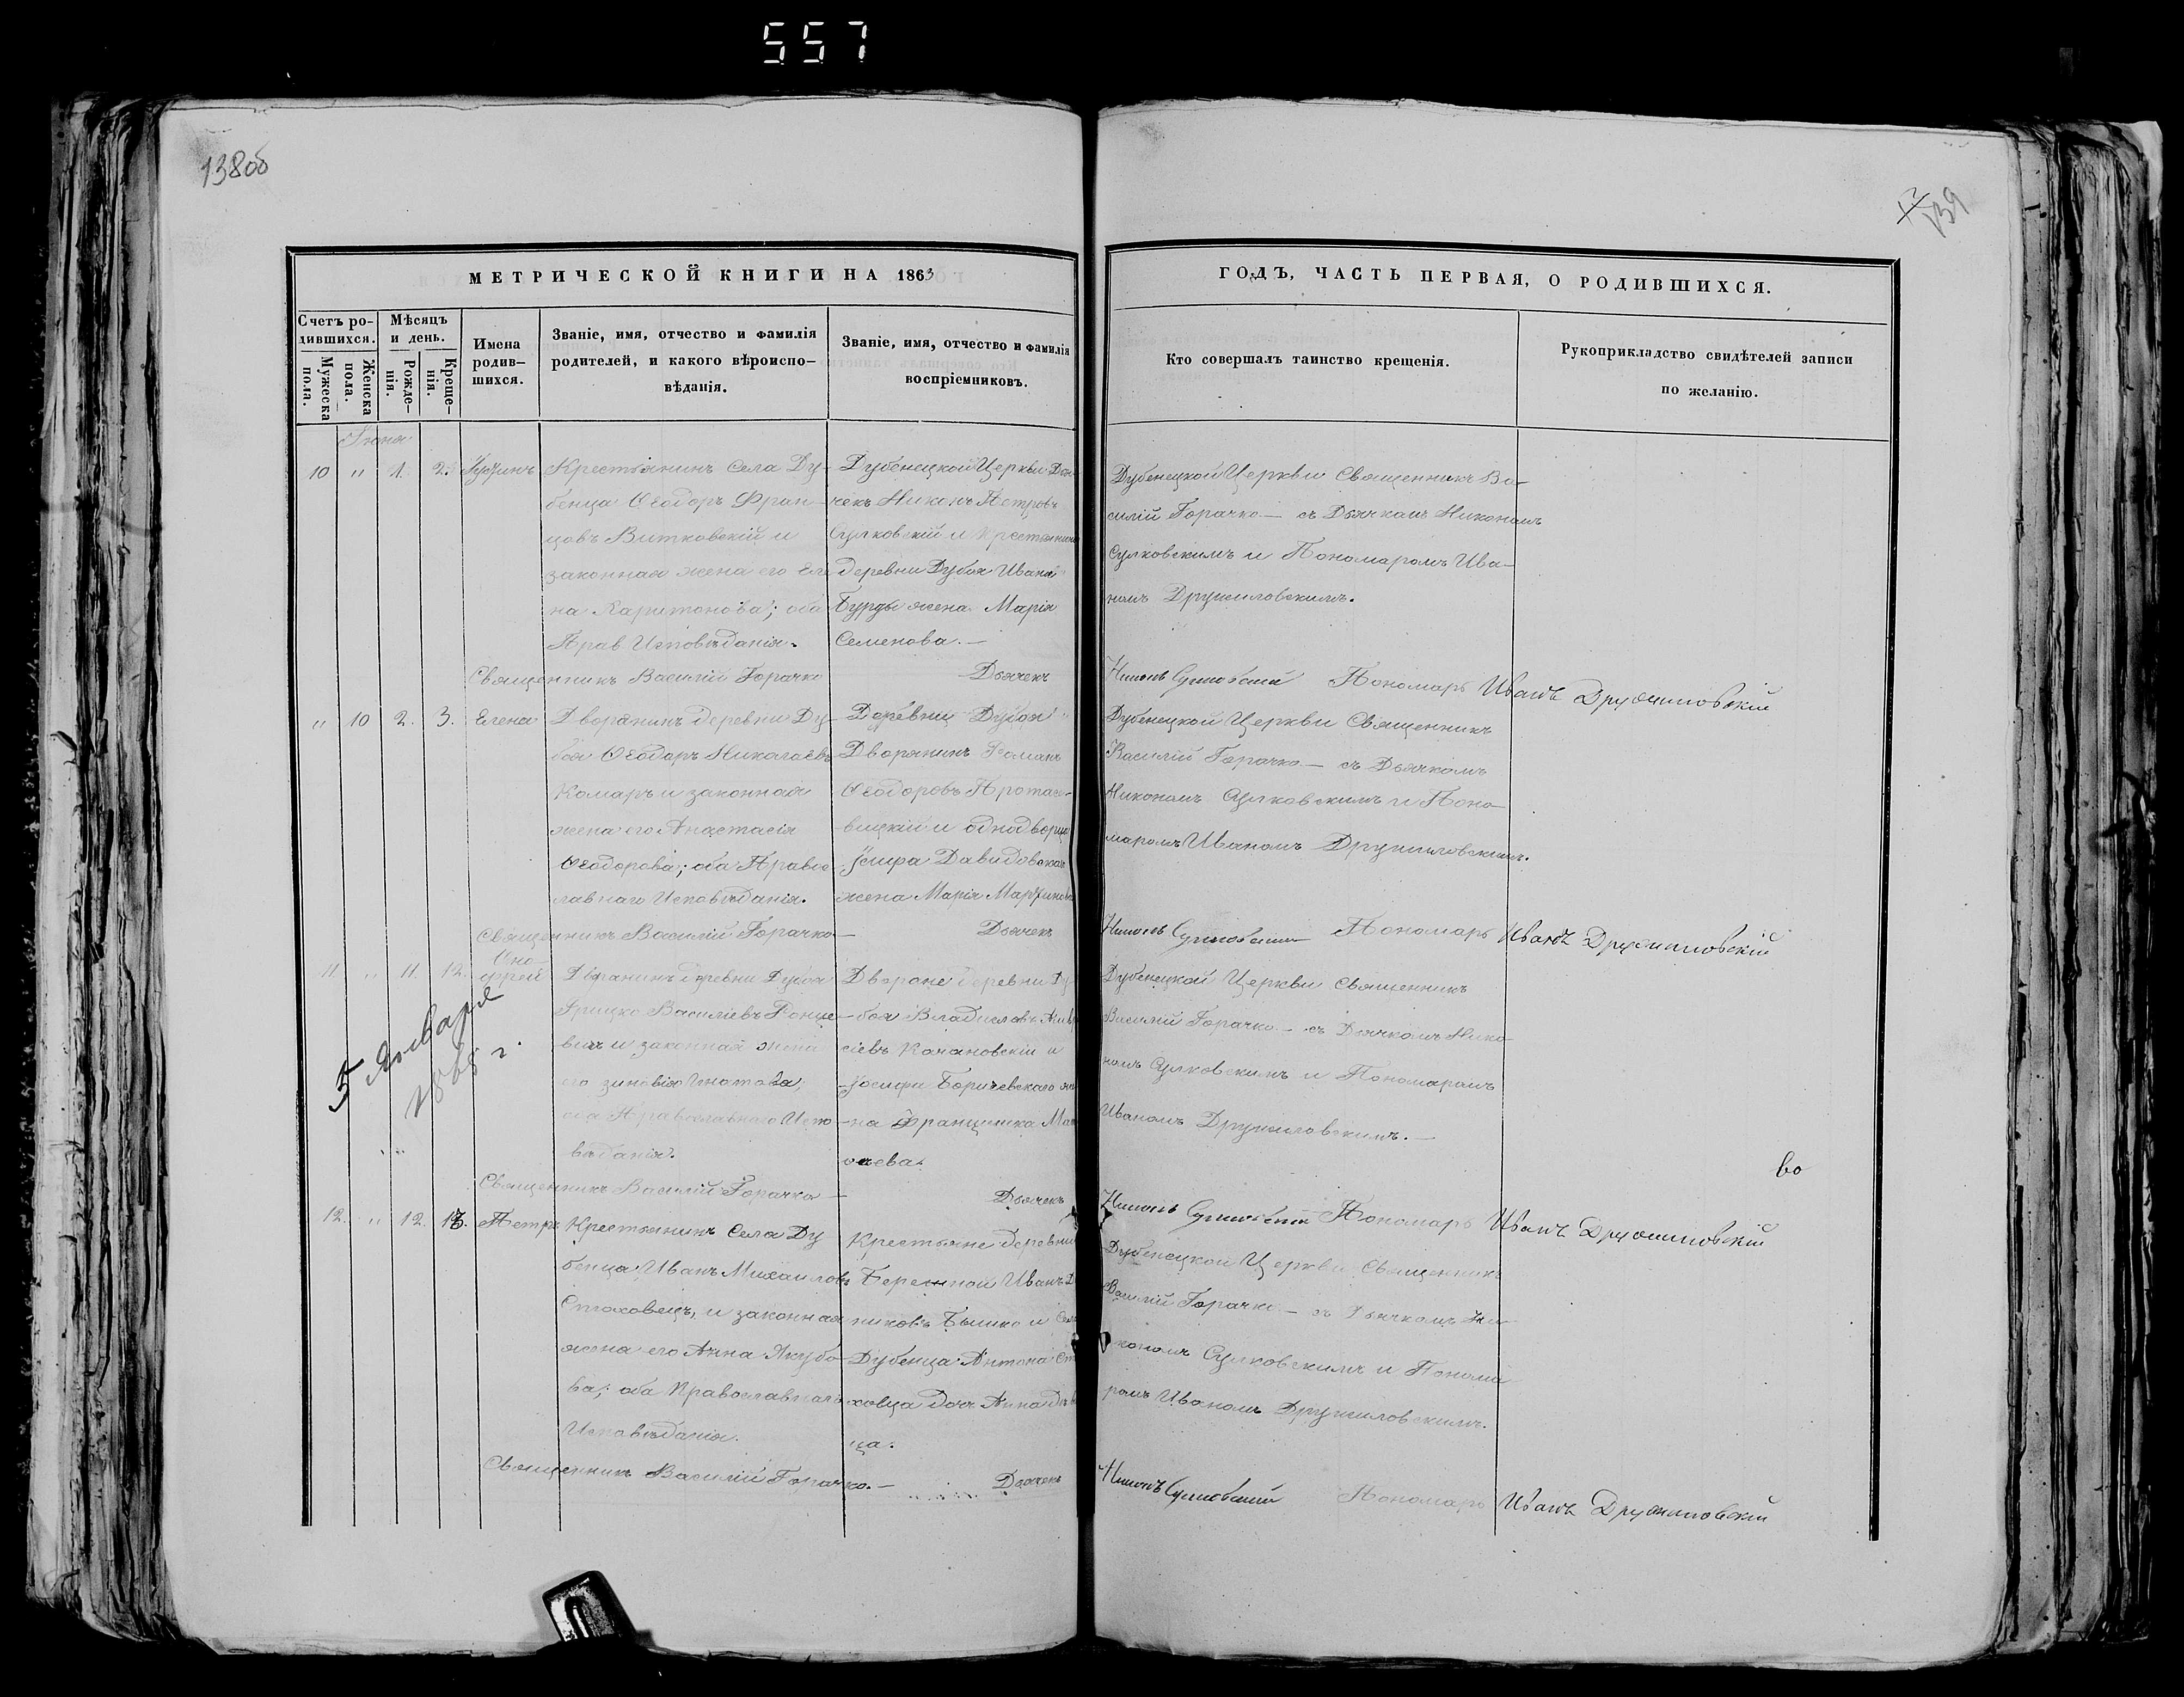 557
138об
139
МЕТРИЧЕСКОЙ КНИГИ НА 1863
ГОДЪ, ЧАСТЬ ПЕРВАЯ, О РОДИВШИХСЯ.
Счетъ ро-
дившихся.
Мужеска
пола.
Женска
пола.
Мѣсяцъ
и день.
Рожде-
нія.
Креще-
нія.
Имена
родив-
шихся.
Званіе, имя, отчество и фамилія
родителей, и какого вѣроиспо-
вѣданія.
Званіе, имя, отчество и фамилія
воспріемниковъ.
Кто совершалъ таинство крещенія.
Рукоприкладство свидѣтелей записи
по желанію.
Іюня
10 " 1. 2.
Крестьянинъ Села Ду-
бенца Ѳеодоръ Фран-
цовъ Витковскій и
законная жена его Еле
на Харитонова; оба
Прав Исповѣданія.
Дубенецкой Церкви
чекъ Никонъ Петровъ
Сулковскій и Крестьянина
деревни Дубоя Ивана
Бурды жена Марія
Семенова.—
Дубенецкой Церкви Священникъ Ва-
силій Горачко — съ Дьячкомъ Никономъ
Сулковскимъ и Пономаромъ Ива-
номъ Дружиловскимъ.
Священникъ Василій Горачко Дьячекъ Никонъ Сулковскій Пономарь Иванъ Дружиловскій
" 10 2. 3. Елена
Дворянинъ деревни Ду-
боя Ѳеодоръ Николаевъ
Комаръ и законная
жена его Анастасія
Ѳеодорова; оба Правос
лавнаго Исповѣданія.
Деревни Дубоя
Дворянинъ Романъ
Ѳеодоровъ Протасо-
вицкій и однодворца
Іосифа Давидовскаго
жена Марія
Дубенецкой Церкви Священникъ
Василій Горачко — съ Дьячкомъ
Никономъ Сулковскимъ и Поно-
маромъ Иваномъ Дружиловскимъ.
Священникъ Василій Горачко — Дьячекъ Никонъ Сулковскій Пономарь Иванъ Дружиловскій
11 " 11. 12. Оно-
фрей
5 Января
Дворянинъ деревни Дубоя
Грицко Василіевъ
вичъ и законная жена
его Зиновія Игнатова;
оба Православнаго Испо-
вѣданія.
Дворяне деревни Ду-
боя Владиславъ
сіевъ Качановскій и
Іосифа Боричевскаго же
на Францишка
Дубенецкой Церкви Священникъ
Василій Горачко — съ Дьячкомъ Нико-
номъ Сулковскимъ и Пономаромъ
Иваномъ Дружиловскимъ.—
во
Священникъ Василій Горачко — Дьячекъ Никонъ Сулковскій Пономарь Иванъ Дружиловскій
12. " 12. 13. Петръ
Крестьянинъ Села Ду
бенца Иванъ Михаиловъ
Стаховецъ, и законная
жена его Анна Якубо-
ва; оба Православнаго
Исповѣданія.
Крестьяне деревни
Бережной Иванъ
никовъ Бышко и
Дубенца Антона Ст
ховца доч Анна дѣв
ца.
Дубенецкой Церкви Священникъ
Василій Горачко — съ Дьячкомъ Ни-
кономъ Сулковскимъ и Понома
ромъ Иваномъ Дружиловскимъ.
Священникъ Василій Горачко.— Дьячекъ Никонъ Сулковскій Пономарь Иванъ Дружиловскій